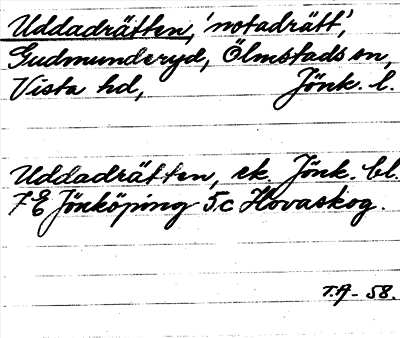 Uddadrätten, 'notadrätt',
Gudmunderyd, Ölmstads sn,
Vista hd, Jönk. l.
Uddadrätten, ek. Jönk. bl.
7 E Jönköping 5c Hovaskog.
T.A - 58.